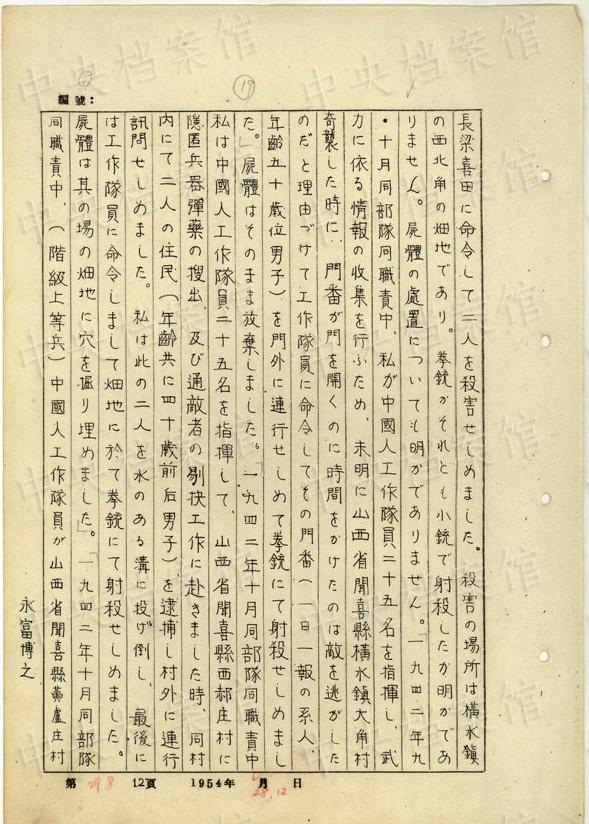 中央档案馆
19
編號：
長梁喜田に命令して二人を殺害せしめました。殺害の場所は橫水鎮
の西北角の畑地であり。拳銃かそれとも小銃で射殺したか明かであ
りません。屍體の處置についても明かでありません。一九四二年九
・十月同部隊同職責中、私が中國人工作隊員二十五名を指揮し、武
力に依る情報の收集を行ふため、未明に山西省聞喜縣橫水鎮大角村
奇襲した時に、門番が門を開くのに時間をかけたのは敵を逃がした
のだと理由づけて工作隊員に命令してその門番（一日一報の系人、
年齡五十歲位男子）を門外に連行せしめて拳銃にて射殺せしめまし
た。屍體はそのまま放棄しました。「一九四二年十月同部隊同職責中
私は中國人工作隊員二十五名を指揮して、山西省聞喜縣西郝庄村に
隱匿兵器彈藥の搜出、及び通敵者の剔抉工作に赴きました時、同村
内にて二人の住民（年齡共に四十歲前后男子）を逮捕し村外に連行
訊問せしめました。私は此の二人を水のある溝に投げ倒し、最後に
は工作隊員に命令しまして畑地に於て拳銃にて射殺せしめました。
屍體は其の場の畑地に穴を掘り埋めました。」「一九四二年十月同部隊
同職責中、（階級上等兵）中國人工作隊員が山西省聞喜縣黃盧庄村
永富博之
第 298 12頁 1954年 月 日
28.12